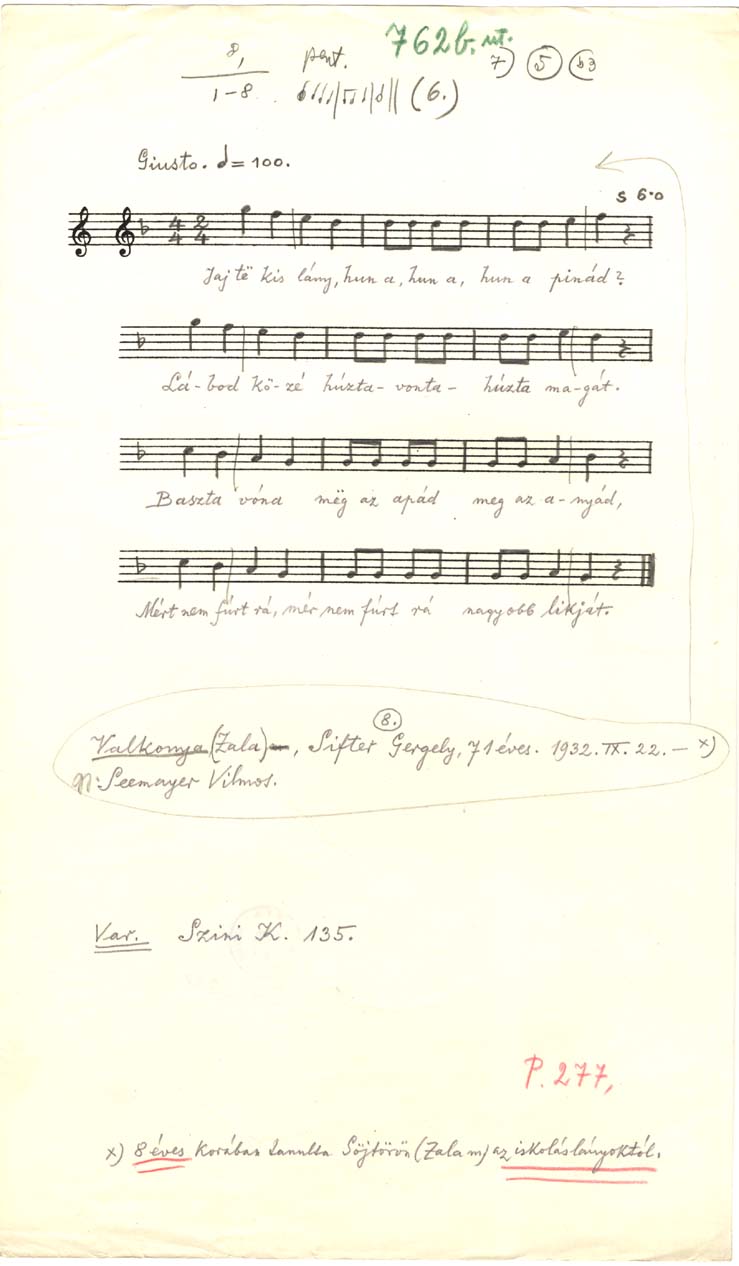 762b. ut.
8,
pent.
7) 5 b3
1-8
(6.)
Giusto. = 100.
s 6·0
4 2
4 4
Jaj të kis lány, hun a, hun a, hun a pinád?
Lá-bod kö-zé húzta-vonta- húzta ma-gát.
Baszta vóna mëg az apád meg az a-nyád,
Mért nem fúrt rá, mér nem fúrt rá nagyobb likját.
8.
Valkonya (Zala), Sifter Gergely, 71 éves. 1932. IX. 22. – x)
Gy: Seemayer Vilmos.
Var. Szini K. 135.
P. 277,
x) 8 éves korában tanulta Söjtörön (Zala m) az iskoláslányoktól.